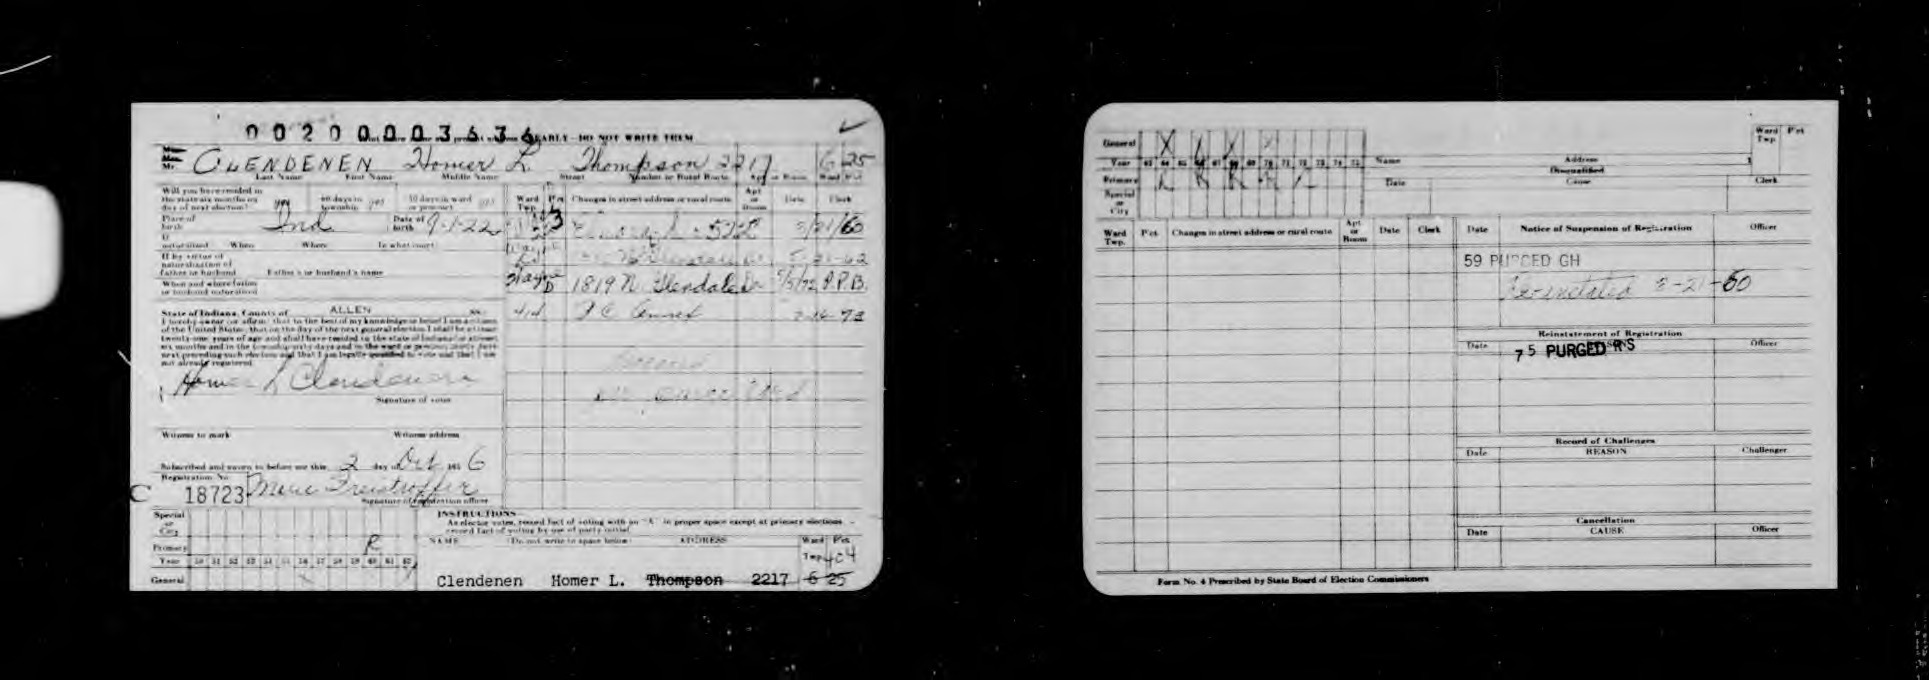 0020000 3636 EARLY - DO NOT WRITE THEM
Mr. CLENDENEN Homer L. Thompson 2217 6 25
Last Name First Name Middle Name Street Number or Rural Route Apt or Room Ward Pct
Will you have resided in the state six months on day of next election? yes 60 days in township yes 30 days in ward or precinct yes
Ward Twp. Pct Changes in street address or rural route Apt or Room Date Clerk
Place of birth Ind Date of birth 9-1-22
5/21/60
If naturalized When Where In what court
5-21-62
If by virtue of naturalization of father or husband Father's or husband's name
Wayne D 1819 N Glendale Dr 5/5/72 A.P.B.
When and where father or husband naturalized
414 F.C. Annex 2-16-73
State of Indiana, County of ALLEN SS:
I hereby swear (or affirm) that to the best of my knowledge or belief I am a citizen
of the United States; that on the day of the next general election I shall be at least
twenty-one years of age and shall have resided in the state of Indiana for at least
six months and in the township sixty days and in the ward or precinct thirty days
next preceding such election and that I am legally qualified to vote and that I am
not already registered
Homer L Clendenen
Signature of voter
Witness to mark Witness address
Subscribed and sworn to before me this 2 day of Oct 195 6
Registration No.
C 18723 Marie Freistroffer
Signature of registration officer
INSTRUCTIONS
As elector votes, record fact of voting with an "X" in proper space except at primary elections -
record fact of voting by use of party initial
Special or City
NAME (Do not write in space below) ADDRESS Ward Pct
Primary R
Twp. 404
Year 50 51 52 53 54 55 56 57 58 59 60 61 62
General
Clendenen Homer L. Thompson 2217 6 25
General X X X X X
Year 63 64 65 66 67 68 69 70 71 72 73 74 75 Name Address Ward Twp. Pct
Primary R R R R R
Special or City
Disqualified
Date Cause Clerk
Ward Twp. Pct. Changes in street address or rural route Apt or Room Date Clerk
Date Notice of Suspension of Registration Officer
59 PURGED GH
Reinstated 5-21-60
Reinstatement of Registration
Date REASONS Officer
75 PURGED RS
Record of Challenges
Date REASON Challenger
Cancellation
Date CAUSE Officer
Form No. 4 Prescribed by State Board of Election Commissioners